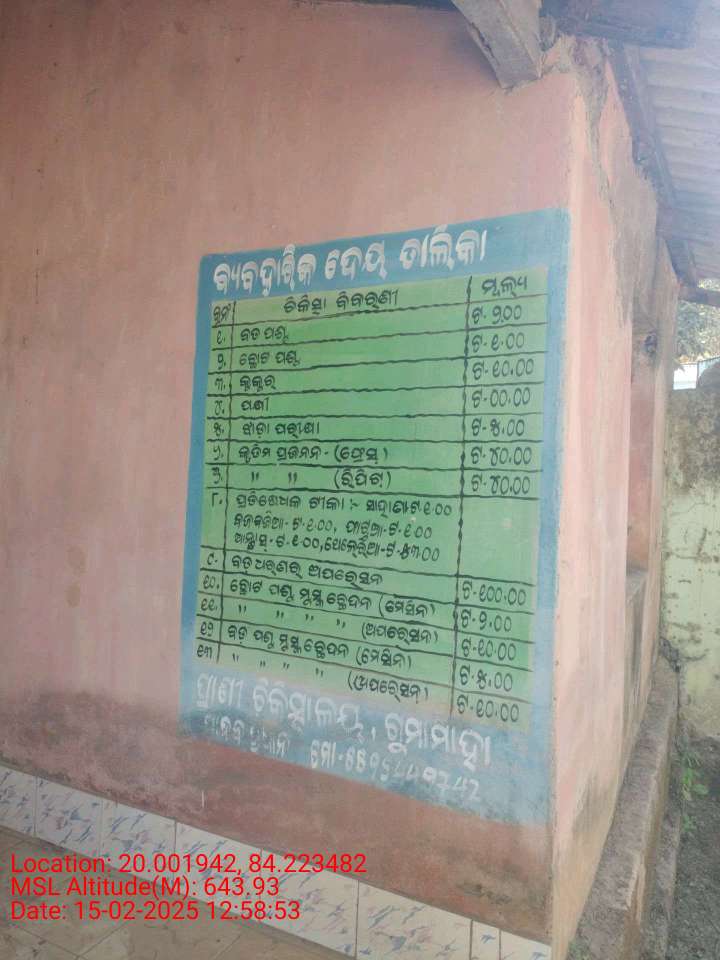 ବ୍ୟବହାରିକ ଦେୟ ତାଲିକା
କ୍ରମ ଚିକିତ୍ସା ବିବରଣୀ ମୂଲ୍ୟ
୧. ବଡ ପଶୁ ଟ.୨.୦୦
୨. ଛୋଟ ପଶୁ ଟ.୧.୦୦
୩. କୁକୁର ଟ.୧୦.୦୦
୪. ପକ୍ଷୀ ଟ.୦୦.୦୦
୫. ଝାଡ଼ା ପରୀକ୍ଷା ଟ.୫.୦୦
୬. କୃତ୍ରିମ ପ୍ରଜନନ-(ଫ୍ରେସ୍) ଟ.୪୦.୦୦
୭. " " (ରିପିଟ୍) ଟ.୪୦.୦୦
୮. ପ୍ରତିଷେଧକ ଟୀକା :- ସାହାଣ.ଟ.୧.୦୦
ବଜ୍ରକଣ୍ଠିଆ-ଟ.୧.୦୦, ଫାଟୁଆ-ଟ.୧.୦୦
ଆନ୍ଥ୍ରାକ୍ସ-ଟ.୧.୦୦, ଥେଲେରିଆ-ଟ.୫୩.୦୦
୯. ବଡ଼ ଧରଣର ଅପରେସନ ଟ.୧୦୦.୦୦
୧୦. ଛୋଟ ପଶୁ ମୁସ୍କ ଛେଦନ (ମେସିନ) ଟ.୨.୦୦
୧୧. " " " " (ଅପରେସନ) ଟ.୧୦.୦୦
୧୨ ବଡ଼ ପଶୁ ମୁସ୍କ ଛେଦନ (ମେସିନ) ଟ.୫.୦୦
୧୩ " " " " (ଅପରେସନ) ଟ.୧୦.୦୦
ପ୍ରାଣୀ ଚିକିତ୍ସାଳୟ, ଗୁମାମାହା
ମୋ-
Location: 20.001942, 84.223482
MSL Altitude(M): 643.93
Date: 15-02-2025 12:58:53